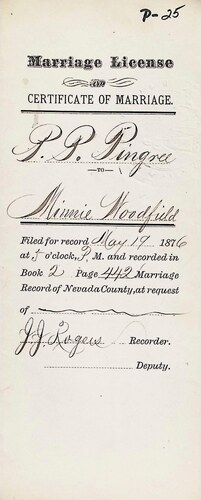 P-25
Marriage License
OR
CERTIFICATE OF MARRIAGE.
P. P. Pingree
TO
Minnie Woodfield
Filed for record May 19 1876
at 5 o'clock, P. M. and recorded in
Book 2 Page 442 Marriage
Record of Nevada County, at request
of
J. J. Rogers Recorder.
Deputy.